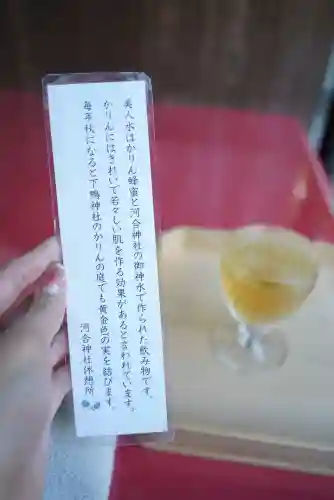 美人水はかりん蜂蜜と河合神社の御神水で作られた飲み物です。
かりんにはきれいで若々しい肌を作る効果があると言われています。
毎年秋になると下鴨神社のかりんの庭でも黄金色の実を結びます。
河合神社休憩所